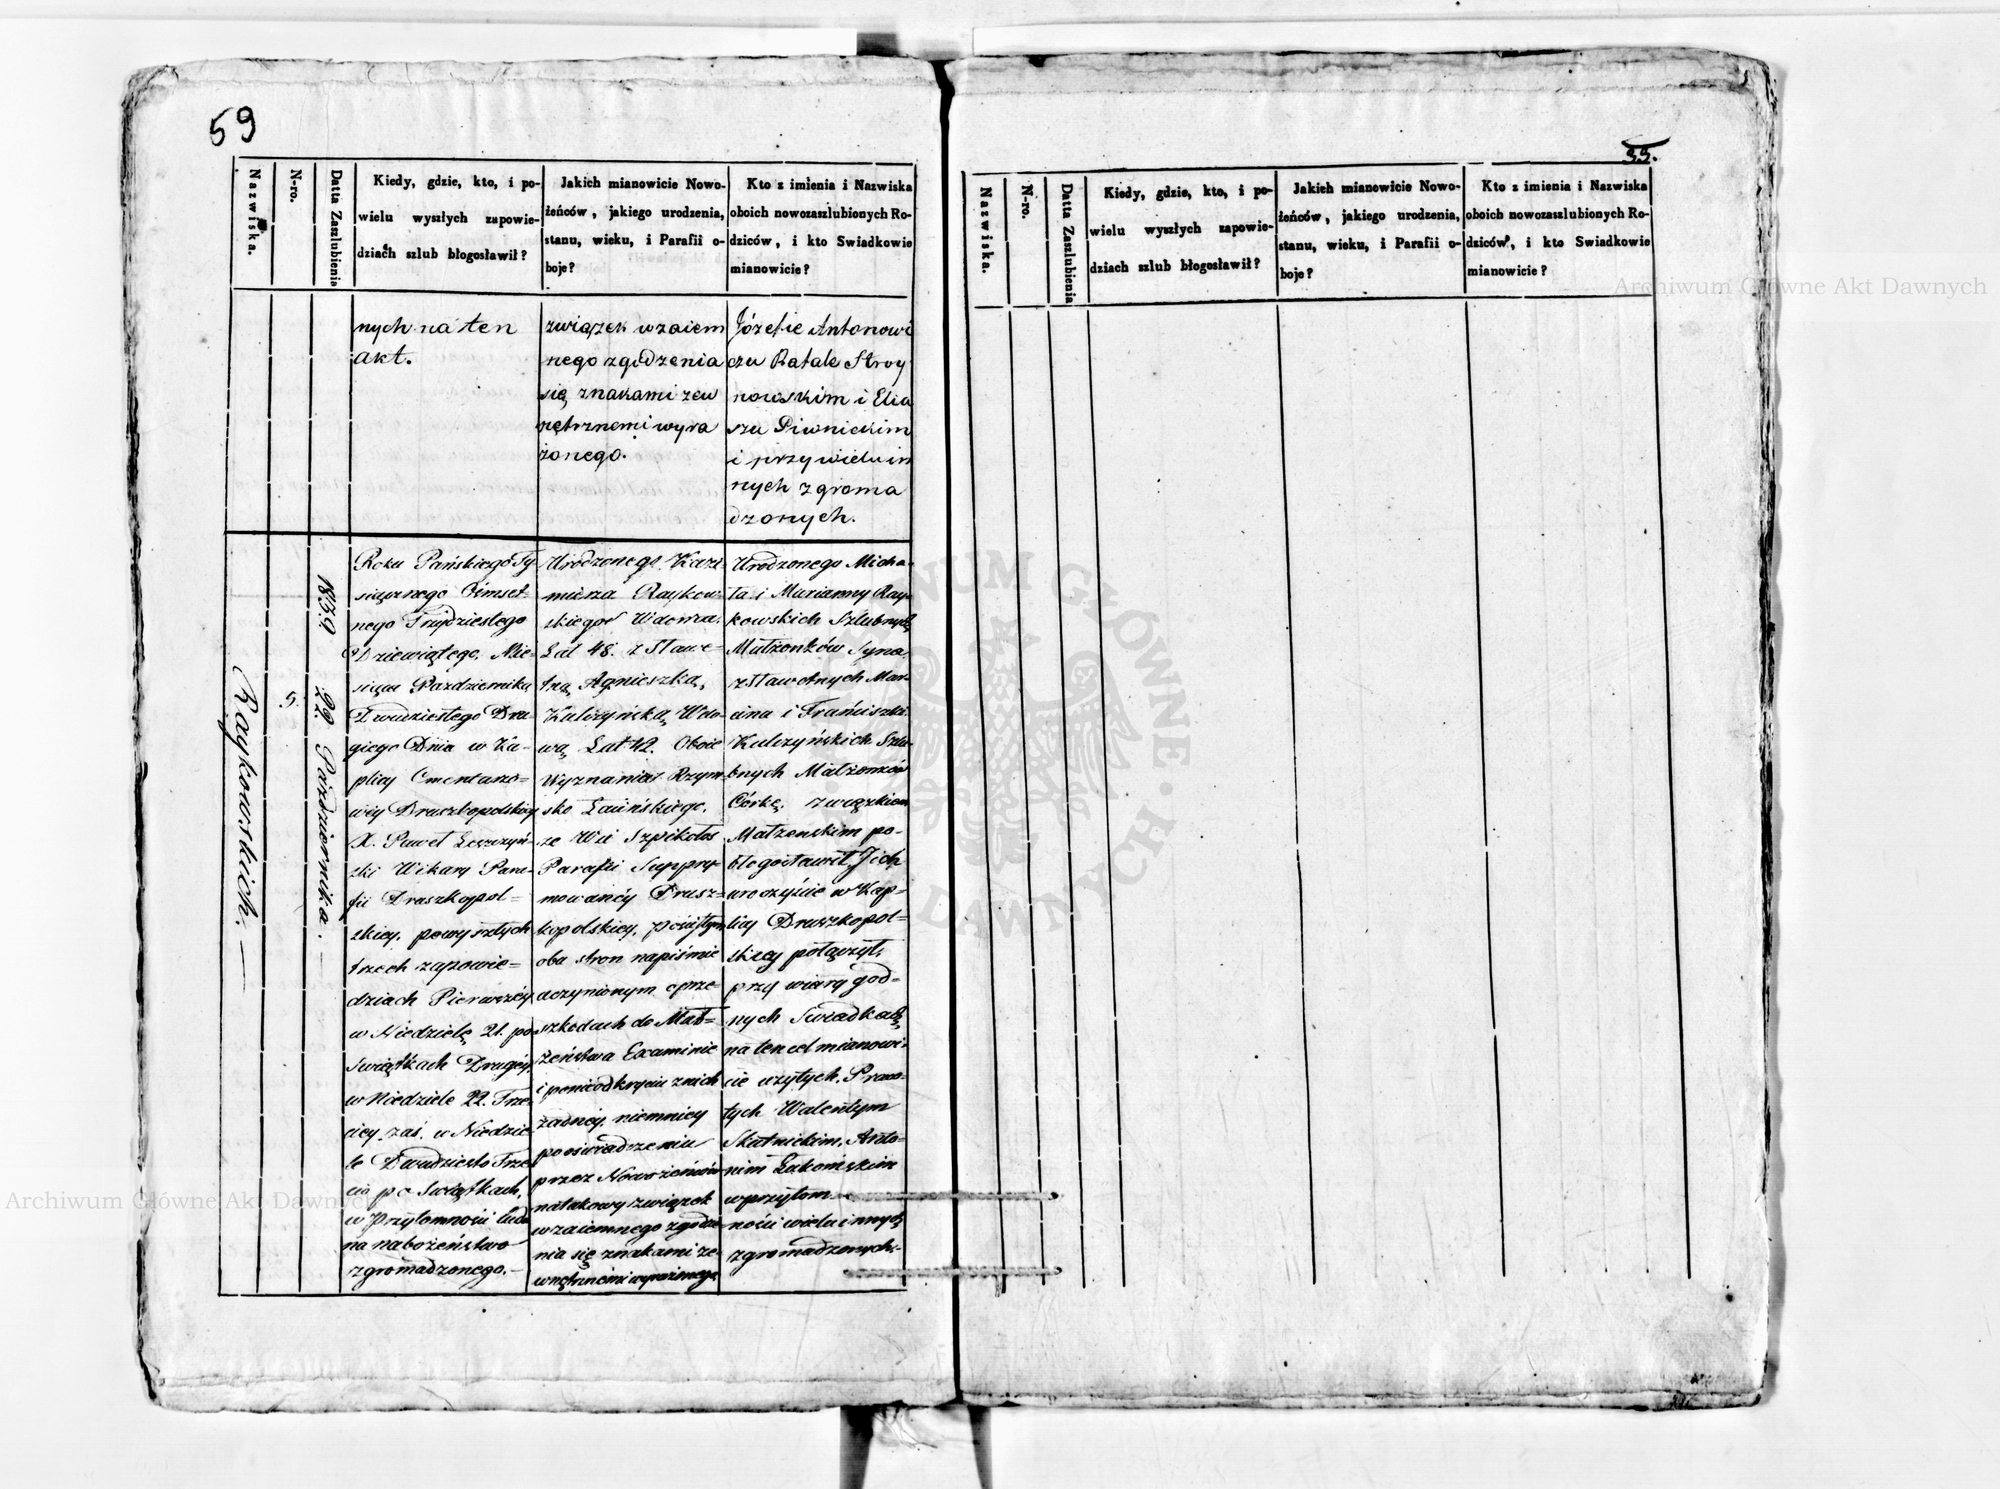 59
Nazwiska.
N-ro.
Datta Zaszlubienia
Kiedy, gdzie, kto, i po-
wielu wyszłych zapowie-
dziach szlub błogosławił?
Jakich mianowicie Nowo-
żeńców, jakiego urodzenia,
stanu, wieku, i Parafii o-
boje?
Kto z imienia i Nazwiska
oboich nowozaszlubionych Ro-
dziców, i kto Swiadkowie
mianowicie?
nych na ten
akt.
związek wzaiem
nego zgodzenia
się znakami zew
nętrznemi wyra
żonego.
Józefie Antonowi
czu Rafale Stroy
nowskim i Elia
szu Piwnickim
i przy wielu in
nych zgroma
dzonych.
Raykowskich.
5.
1839 22 Października.
Roku Pańskiego Ty-
siącznego Ośmset-
nego Trzydziestego
Dziewiątego, Mie-
siąca Października
Dwudziestego Dru-
giego Dnia w Ka-
plicy Cmentarzo-
wéy Druszkopolskiéy
X. Paweł Leszczyń-
ski Wikary Para-
fii Druszkopol=
skiey, powyszłych
trzech zapowie=
dziach Pierwszéy
w Niedzielę 21. po
Swiątkach Drugiéy
w Niedziele 22. Trze-
ciey zaś, w Niedzie-
le Dwudziesto Trze
cią po Swiątkach,
w Przytomności ludu
na nabożeństwo
zgromadzonego.-
Urodzonego Kazi-
mierza Raykow-
skiego Wdowca,
Lat 48. z Sławe-
tną Agnieszką,
Kulczyńską Wdo-
wą Lat 42. Oboie
Wyznania Rzym-
sko Łacińskiego,
ze Wsi Szpikołos
Parafii Suppry-
mowanéy Drusz=
kopolskiey, po
oba stron napiśmie
uczynionym oprze-
szkodach do Mał=
żeństwa Examinie
i ponieodkryciu znich
żadnéy, niemniey
pooswiadczeniu
przez Nowożeńców
natakowy związek
wzaiemnego zgodze-
nia się znakami ze-
wnętrznémi wyrażonego
Urodzonego Micha-
ła i Maryanny Ray-
kowskich Szlubnych
Małżonków Syna,
z Sławetnych Mar-
cina i Franciszki
Kulczyńskich Szlu-
bnych Małżonków
Córkę, związkiem
Małżenskim po-
błogosławił, Jich
uroczyście w Kap=
licy Druszkopol=
skiey połączył,
przy wiary god=
nych Swiadkach
na ten cel mianowi-
cie użytych, Praco-
tych Walentym
Skutnickim, Anto-
nim Łakomskim
w przytom-
ności wielu innych
zgromadzonych.
33.
Nazwiska.
N-ro.
Datta Zaszlubienia
Kiedy, gdzie, kto, i po-
wielu wyszłych zapowie-
dziach szlub błogosławił?
Jakich mianowicie Nowo-
żeńców, jakiego urodzenia,
stanu, wieku, i Parafii o-
boje?
Kto z imienia i Nazwiska
oboich nowozaszlubionych Ro-
dziców, i kto Swiadkowie
mianowicie?
Archiwum Główne Akt Dawnych
Archiwum Główne Akt Dawnych
ARCHIWUM GŁÓWNE AKT DAWNYCH